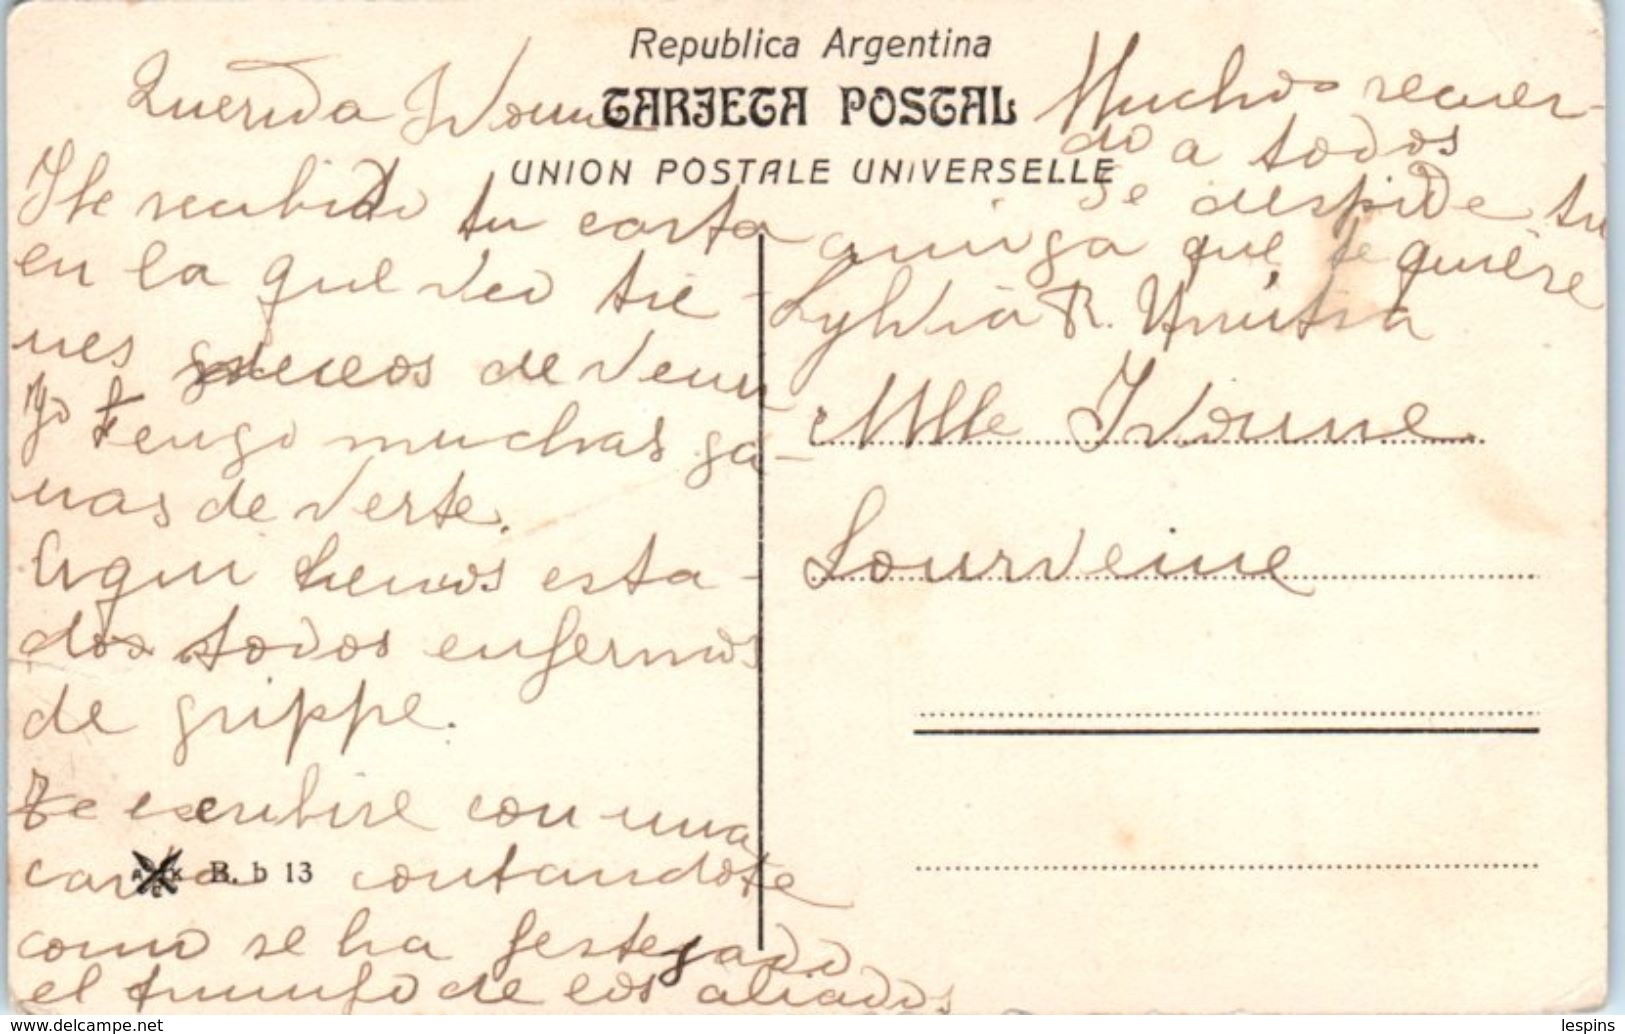 Republica Argentina
TARJETA POSTAL
UNION POSTALE UNIVERSELLE
Querida Ivonne
He recibido tu carta
en la que veo tie-
nes deseos de venir
yo tengo muchas ga-
nas de verte.
Aqui hemos esta-
dos todos enfermos
de grippe.
Te escribire con una
carta contandote
como se ha festegado
el triunfo de los aliados
B. b 13
Muchos recuer-
do a todos
se despide tu
amiga que te quiere
Sylvia R.
Mlle Ivonne
Lourveine
www.delcampe.net
lespins